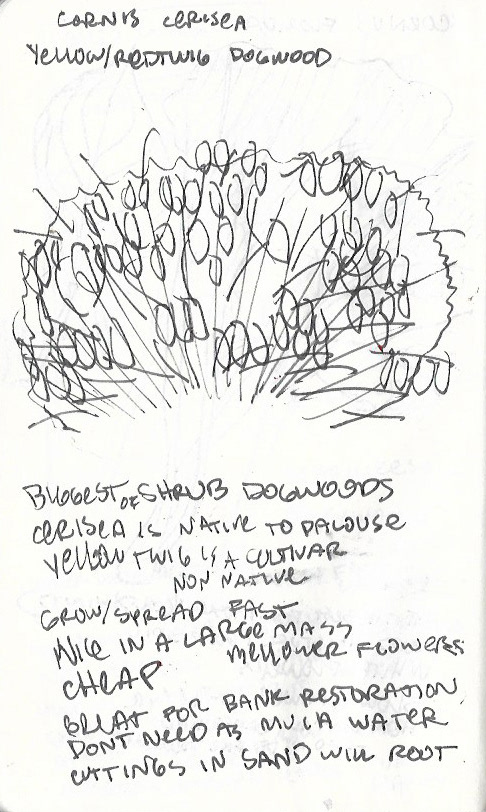 CORNUS CERISEA
YELLOW/REDTWIG DOGWOOD
BIGGEST OF SHRUB DOGWOODS
CERISEA IS NATIVE TO PALOUSE
YELLOW TWIG IS A CULTIVAR
NON NATIVE
GROW/SPREAD FAST
NICE IN A LARGE MASS
MELLOWER FLOWERS
CHEAP
GREAT FOR BANK RESTORATION
DONT NEED AS MUCH WATER
CUTTINGS IN SAND WILL ROOT